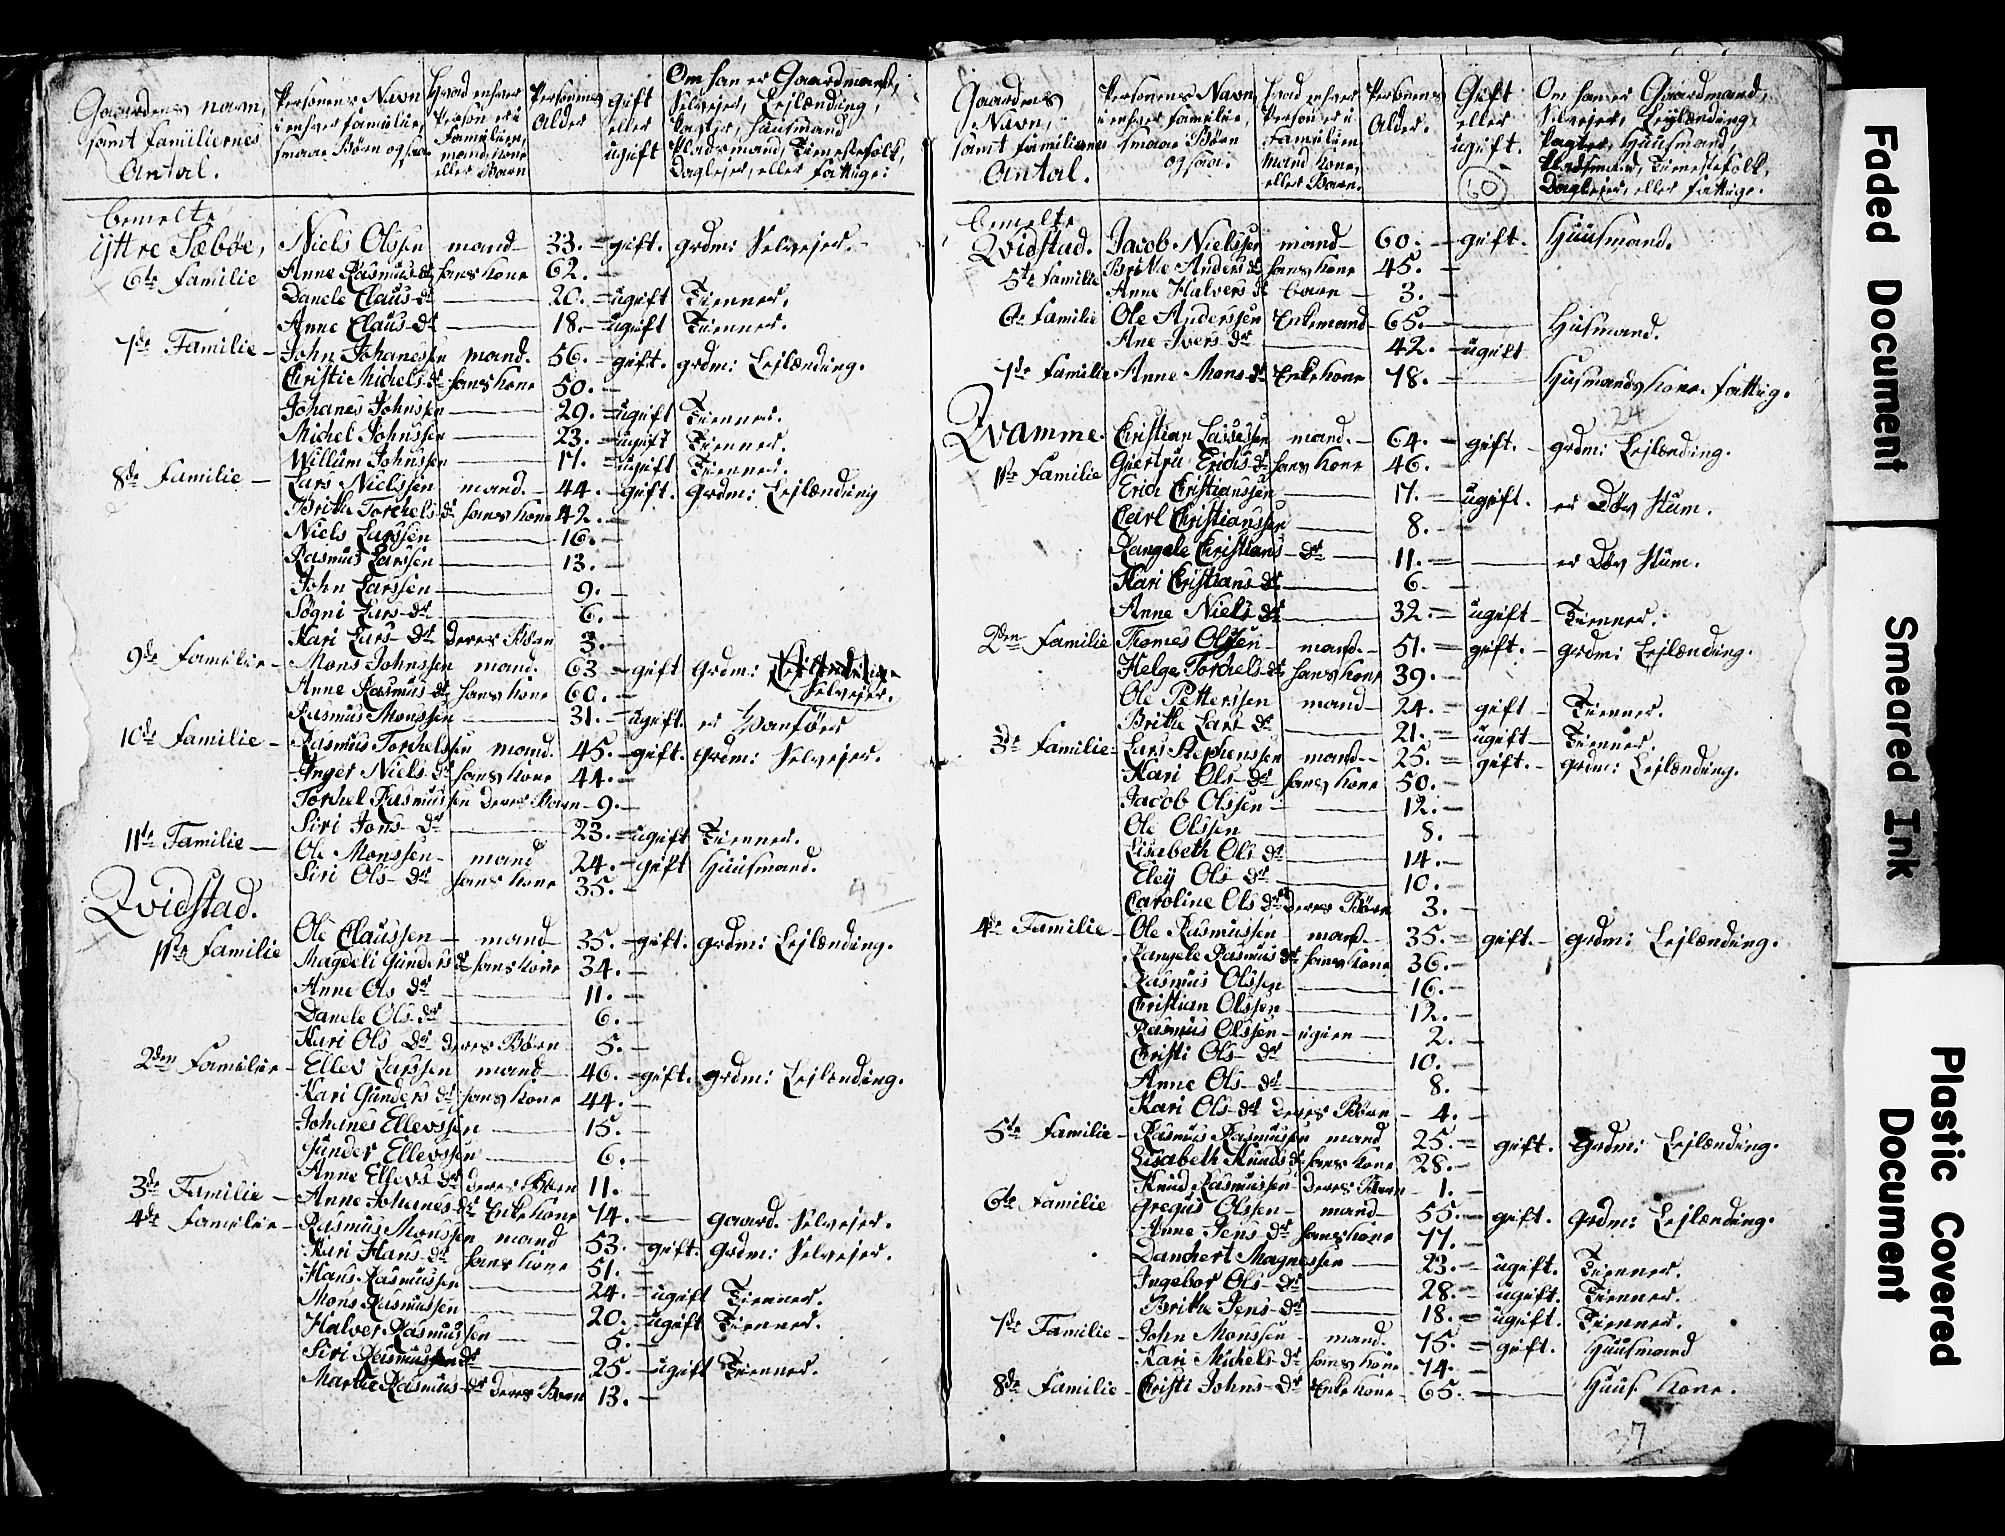 Gaardens navn, samt familiernes Antal. | Personens Navn i enhver familie, smaae Børn ogsaa | Hvad enhver Person er i Familien, mand, kone eller Barn | Personens Alder | gift eller ugift | Om han er Gaardmand, Selvejer, Lejlænding, Pagter, Huusmand Pladsmand, Tienestefolk, Daglejer, eller fattige:
bemelte
Ÿttre Sæbøe,
6te Familie Niels Olssen mand 33. gift. grdm: Selvejer.
Anne Rasmus dr hans kone 62.
Danele Claus dr 20. ugift Tienner.
Anne Claus dr 18. ugift Tienner.
7de Familie John Johanessen mand. 56. gift. grdm: Lejlænding.
Christi Michels dr hans kone 50.
Johanes Johnssen 29. ugift Tienner.
Michel Johnssen 23. ugift Tienner.
Willum Johnssen 17. ugift Tienner.
8de Familie Lars Nielssen mand. 44. gift. Grdm: Lejlænding
Brithe Torchels dr hans kone 42.
Niels Larssen 16.
Rasmus Larssen 13.
John Larssen 9.
Søgni Lars dr 6.
Kari Lars dr deres Børn 3.
9de Familie Mons Johnssen mand. 63 gift Grdm: Selvejer.
Anne Rasmus dr hans kone 60.
Rasmus Monssen 31. ugift. er Vanføer
10de Familie Rasmus Torchelssen mand. 45. gift. Grdm: Selvejer.
Inger Niels dr hans kone 44.
Torchel Rasmussen deres Barn 9.
Siri Jons dr 23. ugift Tienner.
11te Familie Ole Monssen mand 24. gift Huusmand.
Siri Ols dr hans kone 35.
45
Qvidstad.
1ste Familie Ole Claussen mand 35. gift. grdm: Lejlænding.
Magdeli Gunders dr hans kone 34.
Anne Ols dr 11.
Danele Ols dr 6.
Kari Ols dr deres Børn 5.
2den Familie Ellev Larssen mand 46. gift. grdm: Lejlænding.
Kari Gunders dr hans kone 44.
Johanes Ellevssen 15.
Gunder Ellevssen 6.
Anne Ellevs dr deres Børn 11.
3de Familie Anne Johanes dr Enke kone 74. gaard. Selvejer.
4de Familie Rasmus Monssen mand 53. gift. Grdm: Selvejer.
Kari Hans dr hans kone 51.
Hans Rasmussen 24. ugift Tienner.
Mons Rasmussen 20. ugift Tienner.
Halver Rasmussen 5.
Siri Rasmus dr 25. ugift Tienner.
Marthe Rasmus dr deres Børn 13.
Gaardens Navn, samt familiernes Antal. | Personens Navn i enhver familie, smaae Børn ogsaa. | Hvad enhver Person er i Familien Mand kone, eller Barn. | Personens Alder. | Gift eller ugift. | Om han er Gaardmand, Selvejer, Lejlænding, Pagter, Huusmand, Pladsmand, Tienestefolk, Daglejer, eller fattige.
60
bemelte
Qvidstad. Jacob Nielssen mand 60. gift. Huusmand.
5te Familie Brithe Anders dr hans kone 45.
Anne Halvers dr barn 3.
6te Familie Ole Anderssen Enkemand 65. Husmand.
Ane Ivers dr 42. ugift
7de Familie Anne Mons dr Enke kone 78. Husmands kone. fattig.
24
Qvamme. Christian Lassessen mand. 64. gift. grdm: Lejlænding.
1ste Familie Giertru Erichs dr hans kone 46.
Erich Christianssen 17. ugift. er Døv Stum.
Carl Christianssen 8.
Rangele Christians dr 11. er Døv Stum.
Kari Christians dr 6.
Anne Niels dr 32. ugift Tienner.
2den Familie Thomes Olssen mand. 51. gift. grdm: Lejlænding.
Helge Torchels dr hans kone 39.
Ole Petterssen mand 24. gift Tienner.
Brithe Lars dr 21. ugift Tienner.
3de Familie Lars Stephenssen mand 25. gift. grdm: Lejlænding.
Kari Ols dr hans kone 50.
Jacob Olssen 12.
Ole Olssen 8.
Lisabeth Ols dr 14.
Eley Ols dr 10.
Caroline Ols dr deres Børn 3.
4de Familie Ole Rasmussen mand 35. gift. grdm: Lejlænding.
Rangele Rasmus dr hans kone 36.
Rasmus Olssen 16.
Christian Olssen 12.
Rasmus Olssen igien 2.
Christi Ols dr 10.
Anne Ols dr 8.
Kari Ols dr deres Børn 4.
5te Familie Rasmus Rasmussen mand 25. gift. Grdm: Lejlænding.
Lisabeth Knuds dr hans kone 28.
Knud Rasmussen deres Barn 1.
6te Familie Gregus Olssen mand 55. gift. Grdm: Lejlænding.
Anne Jens dr hans kone 77.
Danchert Magnessen 23. ugift. Tienner.
Ingebor Ols dr 28. ugift. Tienner.
Brithe Jens dr 18. ugift. Tienner.
7de Familie John Monssen mand. 75. gift. Huusmand
Kari Michels dr hans kone 74.
8de Familie Christi Johns dr Enke kone 65. Huus kone.
37
Faded Document
Smeared Ink
Plastic Covered Document